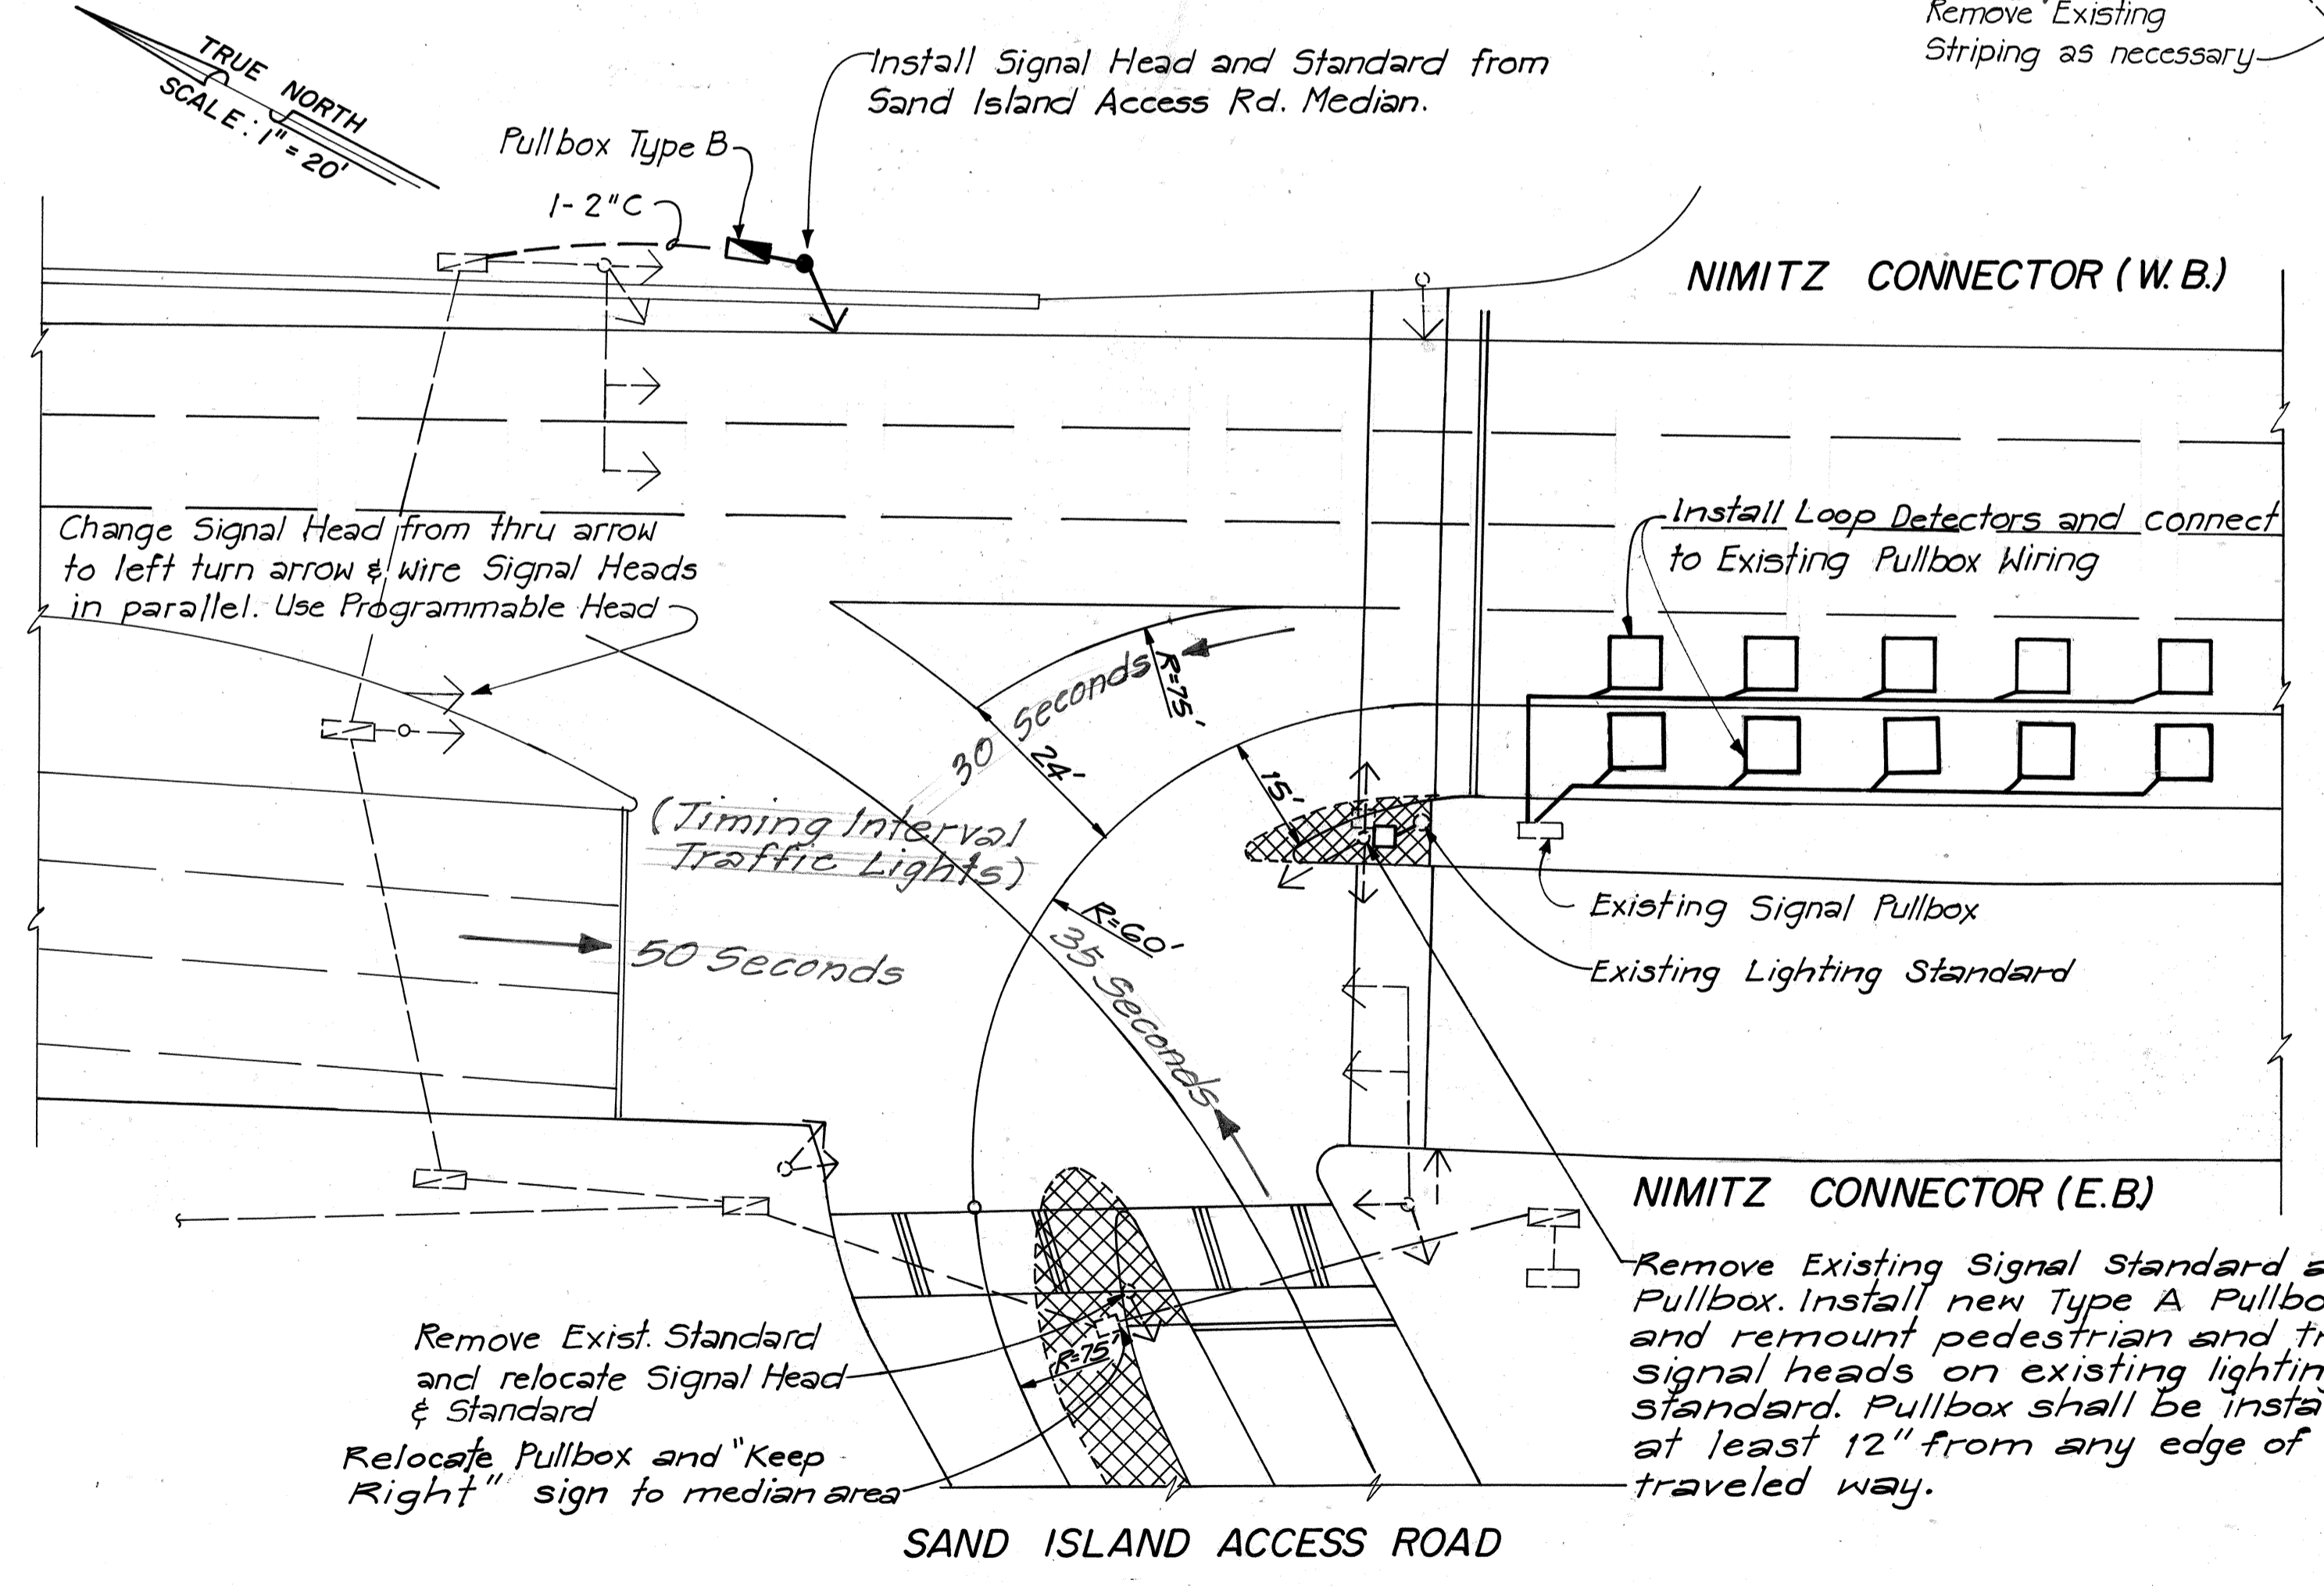 Remove Existing
Striping as necessary
TRUE NORTH
SCALE: 1" = 20'
Install Signal Head and Standard from
Sand Island Access Rd. Median.
Pullbox Type B
1-2"C
NIMITZ CONNECTOR (W.B.)
Change Signal Head from thru arrow
to left turn arrow & wire Signal Heads
in parallel. Use Programmable Head
Install Loop Detectors and connect
to Existing Pullbox Wiring
30 Seconds
R=75'
24'
15'
(Timing Interval
Traffic Lights)
R=60'
50 Seconds
35 Seconds
Existing Signal Pullbox
Existing Lighting Standard
NIMITZ CONNECTOR (E.B.)
Remove Existing Signal Standard
Pullbox. Install new Type A
and remount pedestrian and
signal heads on existing
standard. Pullbox shall be
at least 12" from any edge of
traveled way.
Remove Exist. Standard
and relocate Signal Head
& Standard
R=75'
Relocate Pullbox and "Keep
Right" sign to median area
SAND ISLAND ACCESS ROAD